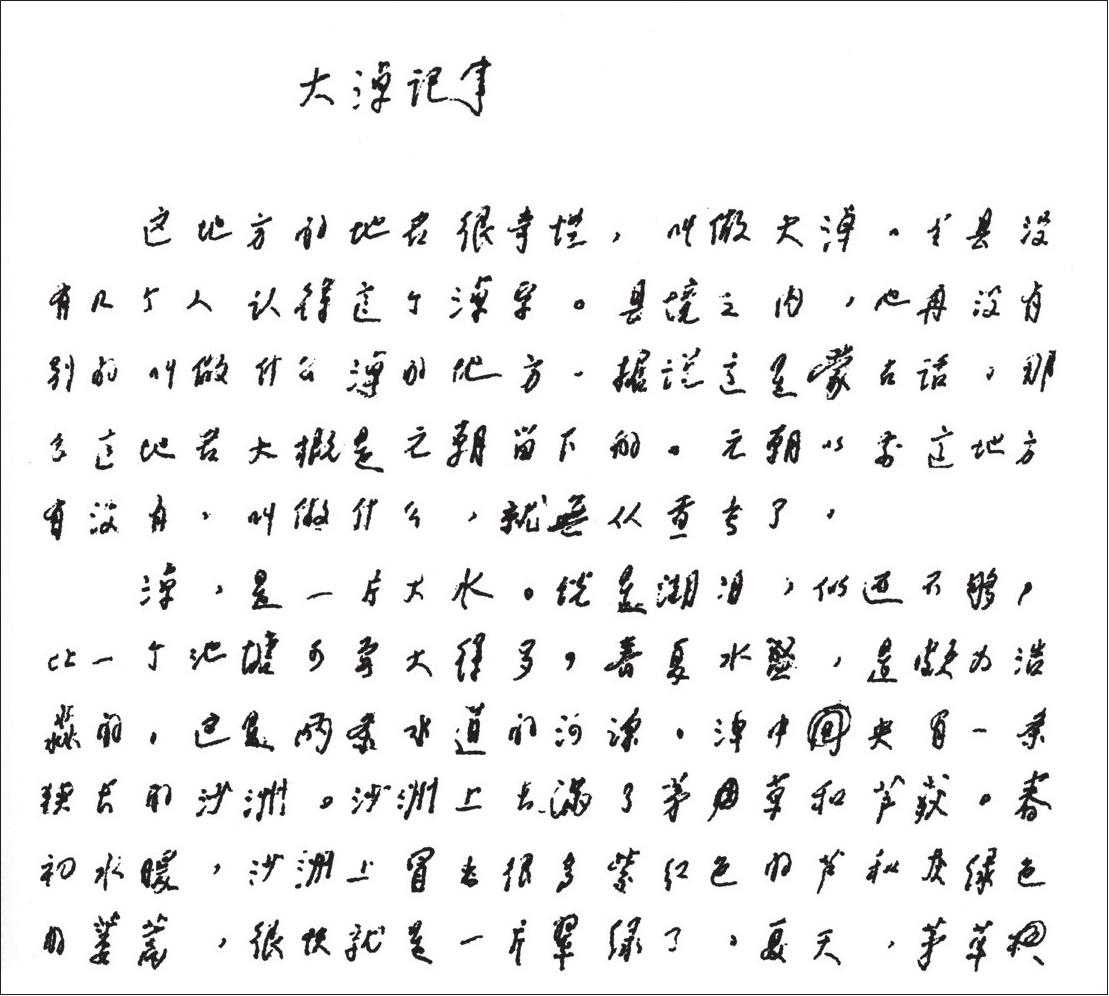 大淖记事
这地方的地名很奇怪，叫做大淖。全县没
有几个人认得这个淖字。县境之内，也再没有
别的叫做什么淖的地方。据说这是蒙古话，那
么这地名大概是元朝留下的。元朝以前这地方
有没有，叫做什么，就无从查考了。
淖，是一片大水。说是湖泊，似还不够，
比一个池塘可要大得多，春夏水盛，是颇为浩
淼的，这是两条水道的河源。淖中央有一条
狭长的沙洲。沙洲上长满了茅草和芦荻。春
初水暖，沙洲上冒出很多紫红色的芦和灰绿色
的蒌蒿，很快就是一片翠绿了，夏天，茅草